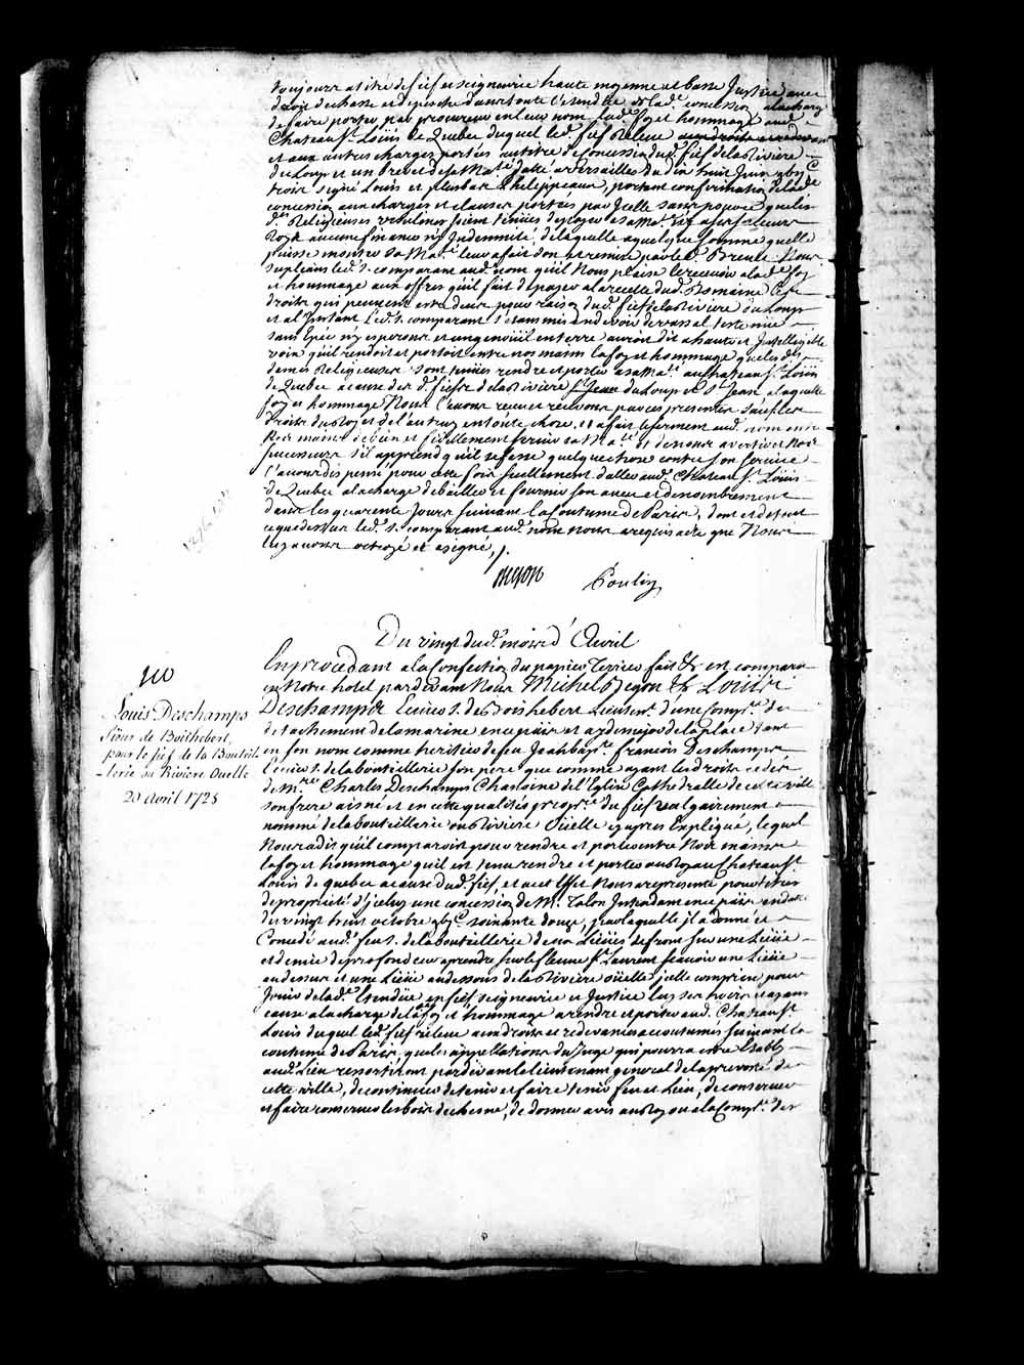 toujours a titre de fief et seigneurie haute moyenne et basse Justice avec
droit de chasse et de pesche dans toute l'etendue de lad.e concession a la charge
de faire porter par procureur en leur nom lad.e foy et hommage aud.
Chateau S.t Loüis de Quebec duquel led. fief releve aux droits et redevances
et aux autres charges portées au titre de Concession dud. fief de la Riviere
du Loup et un Brevet de sa Ma.té datté a Versailles du dix huit Juin
trois signé Louis et plus bas Phelippeaux, portant confirmation de lad.e
concession aux charges et clauses portées par Icelle sans pouvoir que les
d. Religieuses Ursulines soient tenües de payer a sa Ma.té ny a ses successeurs
Roys aucune finance ny Indemnité, de laquelle a quelque somme quelle
puisse monter sa Ma.té leur a fait don et remise par led. Brevet Nous
supliant led. s. comparant aud. nom qu'il Nous plaise le recevoir a lad.e foy
et hommage aux offres qu'il fait de payer a la recette dud. Domaine les
droits qui peuvent estre deus pour raison dud. fief de la Riviere du Loup
et al Instant Led. s. comparant s'etant mis en devoir de vassal teste nüe
sans Epée ny esperons et un genouïl en terre auroit dit a haute et Intelligible
voix qu'il rendoit et portoit entre nos mains la foy et hommage que lesd.
dames Religieuses sont tenües rendre et porter a sa Ma.té au chateau S.t Loüis
de Quebec a cause desd. fiefs de la Riviere S.t Jean du Loup et S.t Jean a laquelle
foy et hommage Nous l'avons receu et recevons par ces presentes sauf les
droits du Roy et de l'autruy en toute chose, et a fait le serment aud. nom entre
Nos mains de bien et fidellement servir sa Ma.té et de nous avertir et Nos
successeurs s'il apprend qu'il se fasse quelque chose contre son service
l'avons dispensé pour cette fois seullement d'aller aud. Chateau S.t Loüis
de Quebec a la charge de bailler et fournir son aveu et denombrement
dans les quarente Jours suivant la Coutume de Paris, dont et de tout
ce que dessus led. s. comparant aud. nom nous a requis acte que Nous
luy avons octroyé et a signé,
Begon Poulin

Du vingt dud. mois d'Avril
110
Louis Deschamps
Sieur de Boishebert,
pour le fief de la Bouteil-
-lerie ou Riviere Ouelle
20 Avril 1725
En procedant a la Confection du papier Terrier fait &.c est comparu
en Notre hotel pardevant Nous Michel Begon &.c Loüis
Deschamps Ecuier s. de Boishebert Lieuten.t d'une Comp.e du
detachement de la marine en ce païs et aydemajor de la place tant
en son nom comme heritier de feu Jean bap.te francois Deschamps
Ecuier s. de la bouteillerie son pere que comme ayant les droits cedés
de M.re Charles Deschamps Chanoine de l'Eglise Cathedralle de cette ville
son frere aisné et en cette qualités propre.re du fief vulgairement
nommé de la bouteillerie ou Riviere Oüelle cy apres Expliqué, lequel
Nous a dit qu'il comparoit pour rendre et porter entre Nos mains
la foy et hommage qu'il est tenu rendre et porter au Roy au Chateau S.t
Louis de quebec a cause dud. fief, et a cet Effet Nous a representé pour titres
de proprieté d'jceluy une concession de M. Talon Intendant en ce païs en datte
du vingt huit octobre soixante douze, par laquelle jl a donné et
Concedé aud. feu s. de la bouteillerie deux Lieües de front sur une Lieüe
et demie de profondeur a prendre sur le fleuve S.t Laurent scavoir une Lieüe
au dessus et une Lieüe au dessous de la Riviere oüelle jcelle comprise pour
Jouir de lad.e Etendüe en fief seigneurie et Justice luy ses hoirs et ayans
cause a la charge de la foy et hommage a rendre et porter aud. Chateau S.t
Louis duquel led. fief releve aux droits et redevances accoutumés suivant la
coutume de Paris, que les appellations du Juge qui pourra estre Etably
aud. Lieu ressortiront pardevant le Lieutenant general de la prevosté de
cette ville, de continuer de tenir et faire tenir feu et Lieu, de conserver
et faire conserver les bois de chesne, de donner avis au Roy ou a la Comp.e des